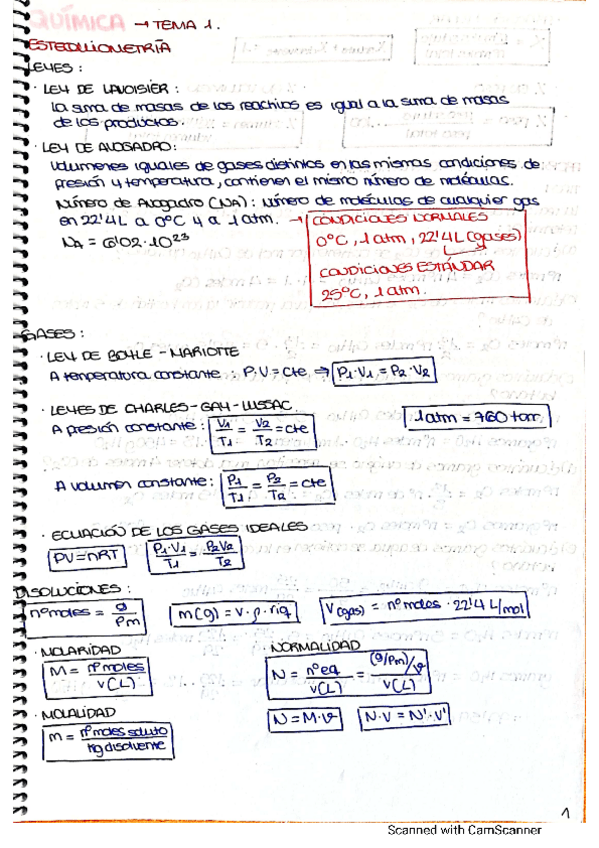 QUÍMICA → TEMA 1.
ESTEQUIOMETRÍA
LEYES:
· LEY DE LAVOISIER:
La suma de masas de los reactivos es igual a la suma de masas
de los productos.
· LEY DE AVOGADRO:
Volumenes iguales de gases distintos en las mismas condiciones de
presión y temperatura, contienen el mismo número de moléculas.
Número de Avogadro (NA): número de moléculas de cualquier gas
en 22'4L a 0ºC y a 1 atm. →
NA = 6'02·10²³
CONDICIONES NORMALES
0ºC, 1 atm, 22'4L (gases)
CONDICIONES ESTÁNDAR
25ºC, 1 atm.
GASES:
· LEY DE BOYLE - MARIOTTE
A temperatura constante: P·V = cte ⇒ P1·V1 = P2·V2
· LEYES DE CHARLES - GAY - LUSSAC
1 atm = 760 torr
A presión constante: V1/T1 = V2/T2 = cte
A volumen constante: P1/T1 = P2/T2 = cte
· ECUACIÓN DE LOS GASES IDEALES
PV = nRT P1·V1/T1 = P2V2/T2
DISOLUCIONES:
nºmoles = g/Pm m(g) = V·ρ·riq V(gas) = nºmoles · 22'4 L/mol
· MOLARIDAD
M = nºmoles/V(L)
· NORMALIDAD
N = nºeq/V(L) = (g/Pm)/v/V(L)
· MOLALIDAD
m = nºmoles soluto/kg disolvente
N = M·v N·V = N'·V'
1
Scanned with CamScanner